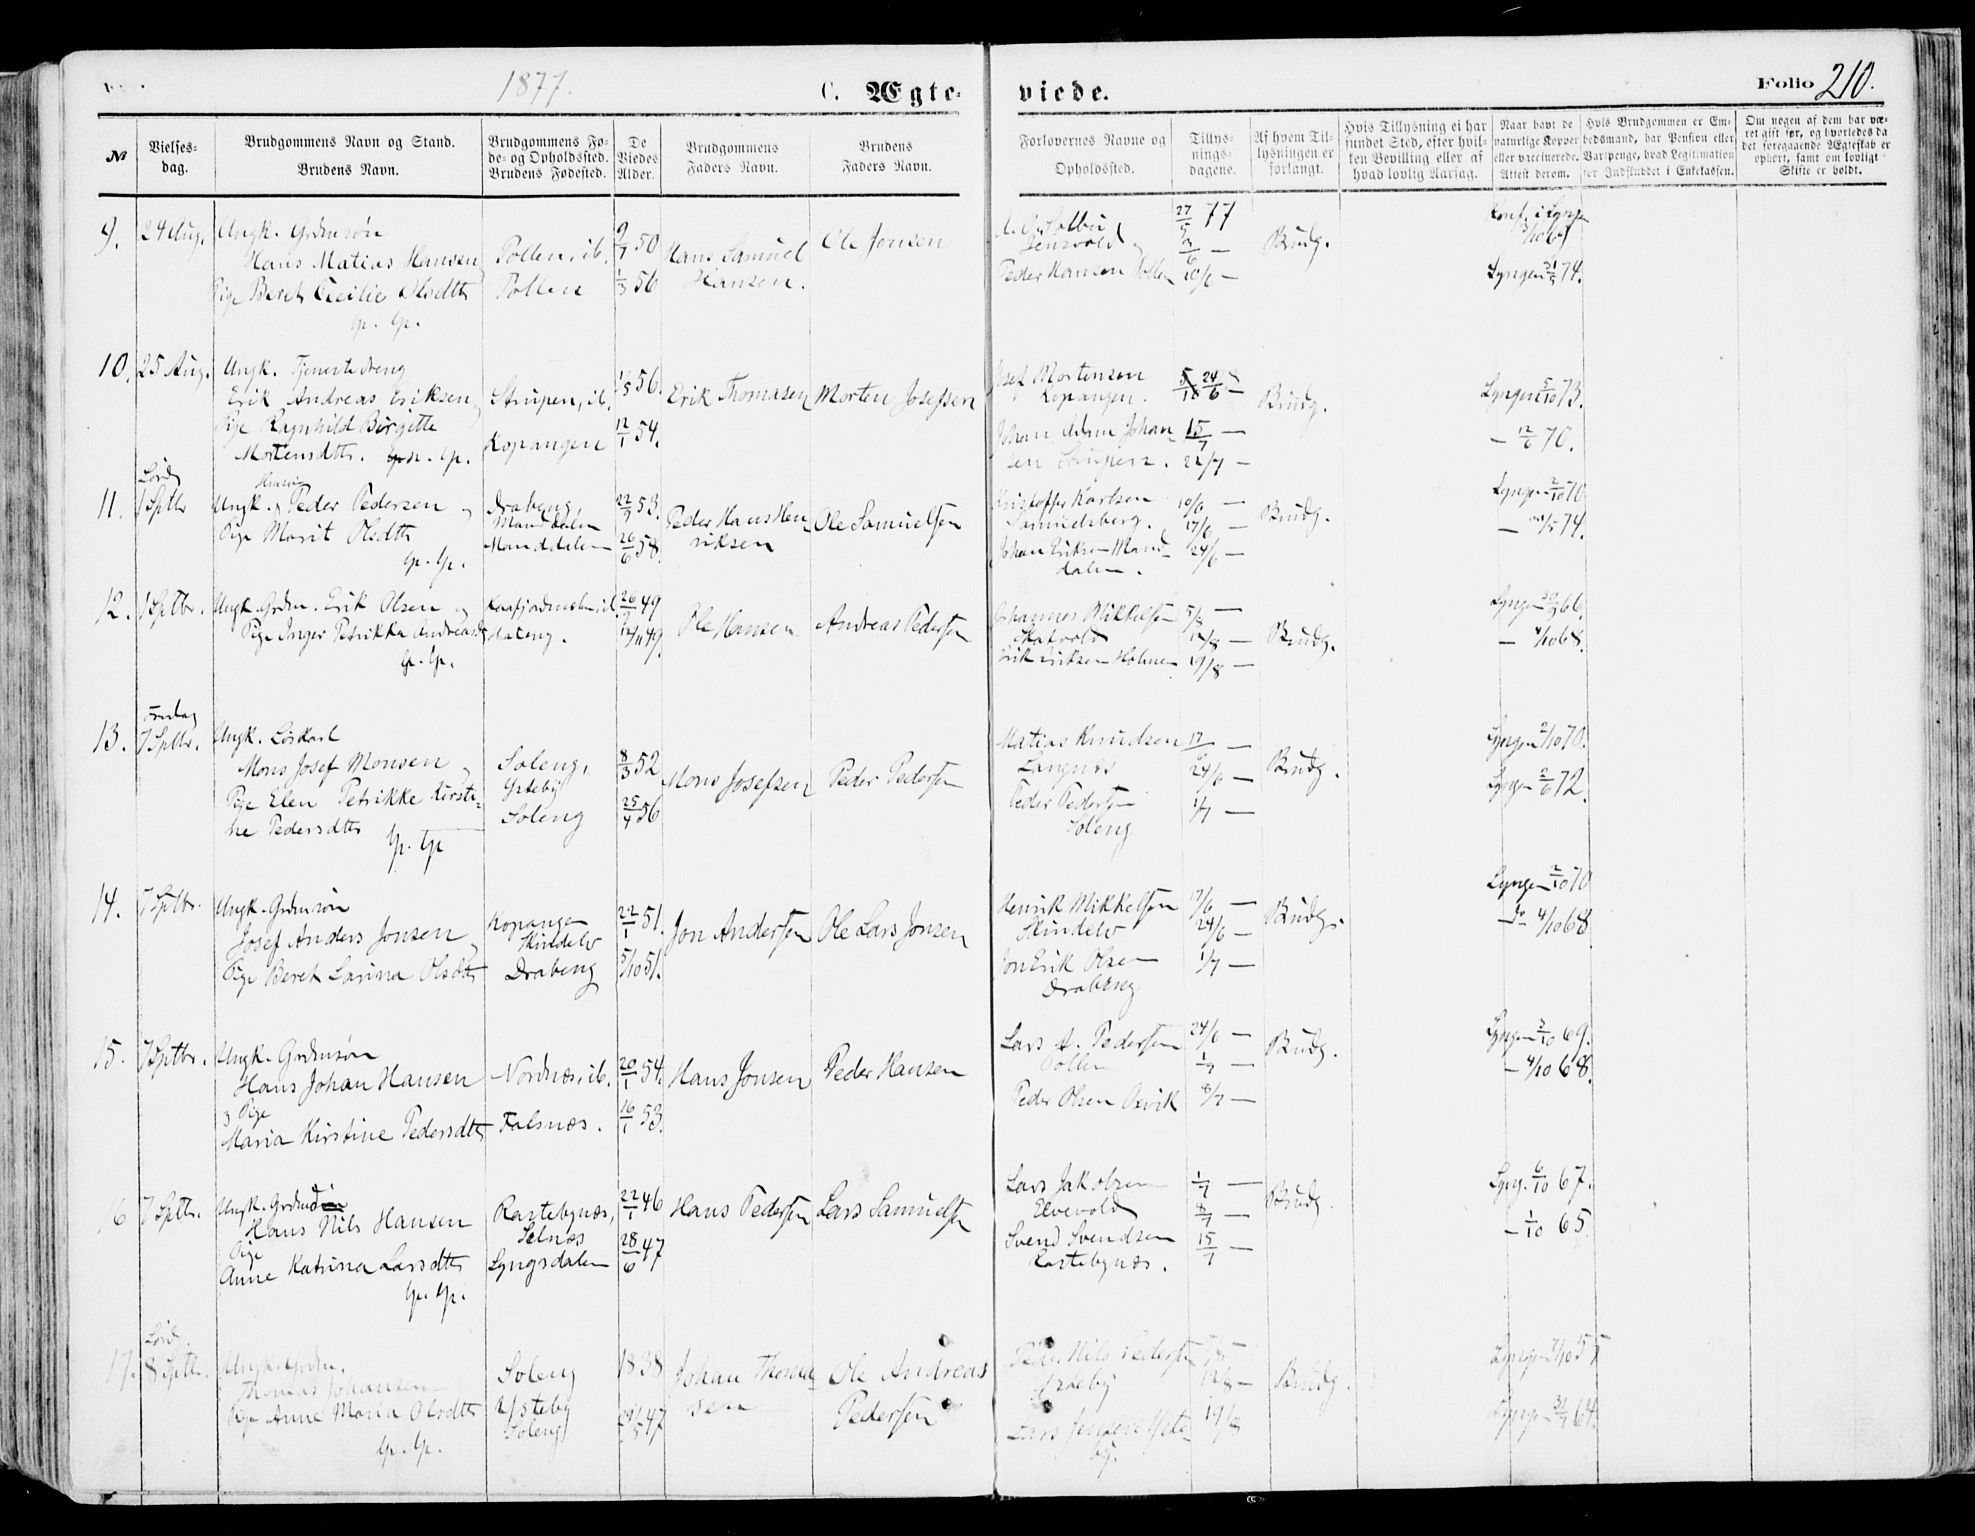 1877.
C. Ægte-
viede.
Folio 210.
№
Vielses-
dag.
Brudgommens Navn og Stand.
Brudens Navn.
Brudgommens Fø-
de- og Opholdssted.
Brudens Fødested.
De
Viedes
Alder.
Brudgommens
Faders Navn.
Brudens
Faders Navn.
Forlovernes Navne og
Opholdssted.
Tillys-
nings-
dagene.
Af hvem Til-
lysningen er
forlangt.
Hvis Tillysning ei har
fundet Sted, efter hvil-
ken Bevilling eller af
hvad lovlig Aarsag.
Naar havt de
naturlige Kopper
eller vaccinerede.
Attest derom.
Hvis Brudgommen er Em-
bedsmand, har Pension eller
Vartpenge, hvad Legitimation
for Indskuddet i Enkekassen.
Om nogen af dem har væ-
ret gift før, og hvorledes da
det foregaaende Ægteskab er
ophørt, samt om lovligt
Skifte er holdt.
9. 24 Aug.
Ungk. Grdmsøn
Hans Matias Hansen
Pige Beret Cecilie Olsdttr
Pollen, ib.
Pollen
9/7 50
1/3 56
Hans Samuel
Hansen.
Ole Jensen
Peder Hansen Pollen
27/5 77
3/6 —
10/6 —
Brudg.
Konf. i Lyngen
Lyngen 74.
10. 25 Aug.
Ungk. Tjenestedreng
Erik Andreas Eriksen
Pige Ragnhild Birgitte
Mortensdttr.
Strupen, ib.
Kopangen
1/5 56.
12/1 54.
Erik Thomasen
Morten Josefsen
Josef Mortensen
Kopangen.
Johan Adam Johan-
sen Strupen.
24/6 —
15/7 —
22/7 —
Brudg.
Lyngen 5/10 73.
— 12/6 70.
11. Lørd
1 Sptbr
Ungk. Peder Pedersen
Pige Marit Olsdttr
Drabeng
Manddalen
Manddalen
22/9 53.
26/6 58.
Peder Hans Hen-
riksen
Ole Samuelsen
Kristoffer Karlsen
Samuelsberg.
Johan Eriksen Mand-
dalen.
10/6 —
17/6 —
24/6 —
Brudg.
Lyngen 2/10 70
12. 1 Sptbr.
Ungk. Grdm. Erik Olsen
Pige Inger Petrikka Andreasdt
Hateng.
26/7 49
12/11 49.
Ole Hansen
Andreas Pedersen
Johannes Mikkelsen
Erik Eriksen Holmen
5/8 —
12/8 —
19/8 —
Brudg.
Lyngen 66.
— 4/10 68.
13. Fredag
7 Sptbr.
Ungk. Løskarl
Mons Josef Monsen
Pige Elen Petrikke Kirsti-
ne Pedersdttr
Soleng,
Ysteby
Soleng
8/3 52
25/4 56
Mons Josefsen
Peder Pedersen
Matias Knudsen
Langnæs
Peder Pedersen
Soleng
17/6 —
24/6 —
1/7 —
Brudg.
Lyngen 2/10 70.
Lyngen 2/6 72.
14. 7 Sptbr.
Ungk. Grdmsøn
Josef Anders Jonsen
Pige Beret Larina Olsdttr
Kopangen
Skindelv
Drabeng
22/1 51.
5/10 51.
Jon Andersen
Ole Lars Jonsen
Henrik Mikkelsen
Skindelv
Jon Erik Olsen
Drabeng
17/6 —
24/6 —
1/7 —
Brudg.
Lyngen 2/10 70
do 4/10 68.
15. 7 Sptbr.
Ungk. Grdmsøn
Hans Johan Hansen
3 Pige
Maria Kirstine Pedersdttr
Nordnæs, ib.
Falsnæs.
20/1 54.
16/1 53.
Hans Jonsen
Peder Hansen
Lars A. Pedersen
Pollen
Peder Olsen Oxvik
24/6 —
1/7 —
8/7 —
Brudg.
Lyngen 3/10 69.
— 4/10 68.
16 7 Sptbr.
Ungk. Grdm
Hans Nils Hansen
Pige
Anne Katrina Larsdttr
Rastebynæs,
Selnæs
Lyngsdalen
22/1 46
28/6 47
Hans Pedersen
Lars Samuelsen
Lars Jakobsen
Elvevold
Svend Svendsen
Rastebynæs.
1/7 —
8/7 —
15/7 —
Brudg.
Lyng. 6/10 67.
— 1/10 65.
17. Lørd.
8 Sptbr.
Ungk. Grdm.
Thomas Johansen
Pige Anne Maria Olsdttr
Soleng
Ysteby
Soleng
1838
47
Johan Thomas-
sen
Ole Andreas
Pedersen
Peder Nils Pedersen
Ysteby
Lars Jensen Yste-
by.
5/8 —
12/8 —
19/8
Brudg.
Lyngen
Lyngen 64.